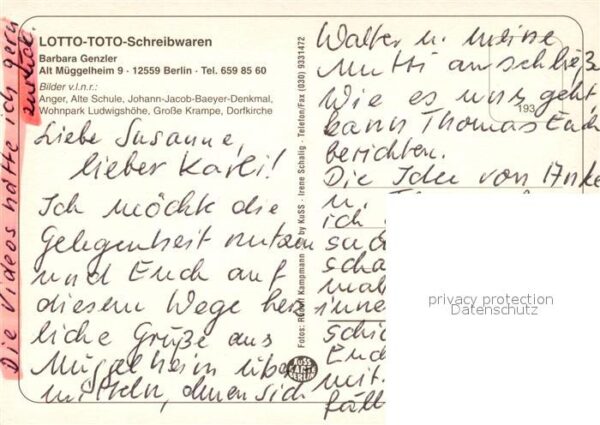 LOTTO-TOTO-Schreibwaren
Barbara Genzler
Alt Müggelheim 9 · 12559 Berlin · Tel. 659 85 60
Bilder v.l.n.r.:
Anger, Alte Schule, Johann-Jacob-Baeyer-Denkmal,
Wohnpark Ludwigshöhe, Große Krampe, Dorfkirche
Liebe Susanne,
lieber Karli!
Ich möchte die
Gelegenheit nutzen
und Euch auf
diesem Wege herz
liche Grüße aus
Müggelheim über
mitteln, denen sich
Die Videos hätte ich gern
zurück.
Fotos: Rudolf Kampmann by KuSS - Irene Schalig - Telefon/Fax (030) 9331472
KuSS
KARTE
BERLIN
Walter u. meine
Mutti anschließ
Wie es uns geht,
kann Thomas Euch
berichten.
Die Idee von Anke
u.
ich
such
scha
mal
inne
schic
End
mit.
fäll
193
privacy protection
Datenschutz